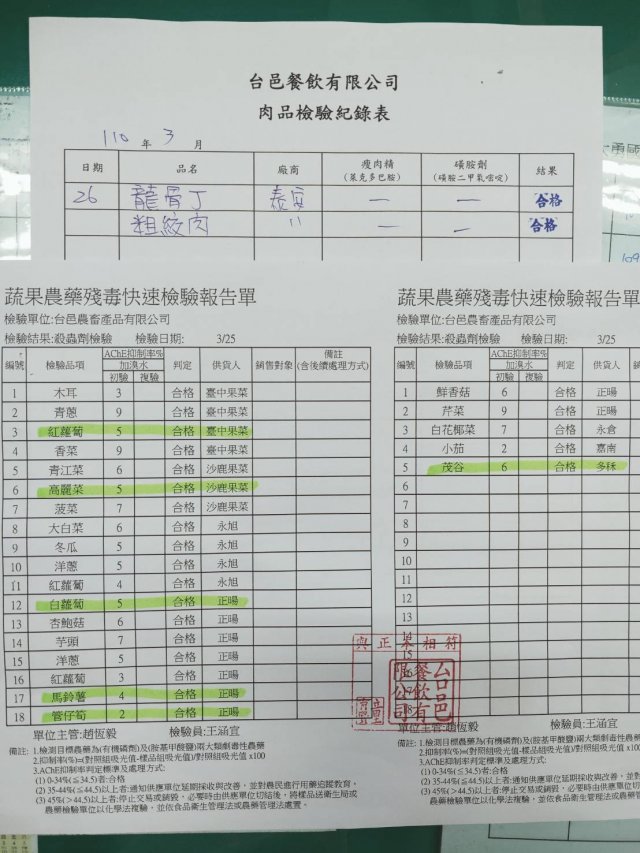 台邑餐飲有限公司
肉品檢驗紀錄表
110 年 3 月
日期 品名 廠商 瘦肉精 (萊克多巴胺) 磺胺劑 (磺胺二甲氧嘧啶) 結果
26 龍骨丁 — — 合格
粗絞肉 〃 — — 合格
蔬果農藥殘毒快速檢驗報告單
檢驗單位:台邑農畜產品有限公司
檢驗結果:殺蟲劑檢驗 檢驗日期: 3/25
編號 檢驗品項 AChE抑制率% 加溴水 初驗 複驗 判定 供貨人 銷售對象 備註 (含後續處理方式)
1 木耳 3 合格 臺中果菜
2 青蔥 9 合格 臺中果菜
3 紅蘿蔔 5 合格 臺中果菜
4 香菜 9 合格 臺中果菜
5 青江菜 6 合格 沙鹿果菜
6 高麗菜 5 合格 沙鹿果菜
7 菠菜 7 合格 沙鹿果菜
8 大白菜 6 合格 永旭
9 冬瓜 5 合格 永旭
10 洋蔥 5 合格 永旭
11 紅蘿蔔 4 合格 永旭
12 白蘿蔔 5 合格 正暘
13 杏鮑菇 6 合格 正暘
14 芋頭 7 合格 正暘
15 洋蔥 5 合格 正暘
16 紅蘿蔔 3 合格 正暘
17 馬鈴薯 4 合格 正暘
18 管仔筍 2 合格 正暘
單位主管:趙恆毅 檢驗員:王涵宜
備註: 1.檢測目標農藥為(有機磷劑)及(胺基甲酸鹽)兩大類劇毒性農藥
2.抑制率(%)=(對照組吸光值-樣品組吸光值)/對照組吸光值 x100
3.AChE抑制率判定標準及處理方式:
(1) 0-34%(≦34.5)者:合格
(2) 35-44%(≦44.5)以上者:通知供應單位延期採收與改善，並對農民進行用藥追蹤教育。
(3) 45%(>44.5)以上者:停止交易或銷毀，必要時由供應單位切結後，將樣品送衛生局或
農藥檢驗單位以化學法複驗，並依食品衛生管理法或農藥管理法處置。
蔬果農藥殘毒快速檢驗報告單
檢驗單位:台邑農畜產品有限公司
檢驗結果:殺蟲劑檢驗 檢驗日期: 3/25
編號 檢驗品項 AChE抑制率% 加溴水 初驗 複驗 判定 供貨人
1 鮮香菇 6 合格 正暘
2 芹菜 9 合格 正暘
3 白花椰菜 7 合格 永倉
4 小茄 2 合格 嘉南
5 茂谷 6 合格 多秝
6
7
8
9
10
11
12
13
14
15
與正本相符
台邑餐飲有限公司
單位主管:趙恆毅 檢驗員:王涵宜
備註: 1.檢測目標農藥為(有機磷劑)及(胺基甲酸鹽)兩大類劇毒性農藥
2.抑制率(%)=(對照組吸光值-樣品組吸光值)/對照組吸光值 x100
3.AChE抑制率判定標準及處理方式:
(1) 0-34%(≦34.5)者:合格
(2) 35-44%(≦44.5)以上者:通知供應單位延期採收與改善，並對
(3) 45%(>44.5)以上者:停止交易或銷毀，必要時由供應單位切結
農藥檢驗單位以化學法複驗，並依食品衛生管理法或農藥管